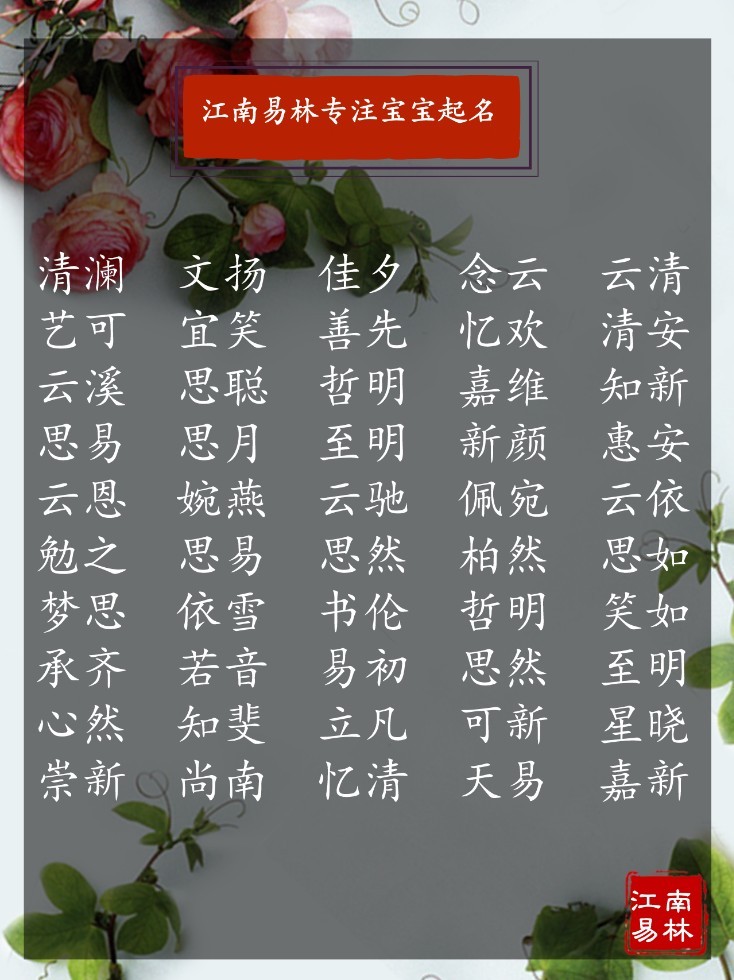 江南易林专注宝宝起名
清澜 文扬 佳夕 念云 云清
艺可 宜笑 善先 忆欢 清安
云溪 思聪 哲明 嘉维 知新
思易 思月 至明 新颜 惠安
云恩 婉燕 云驰 佩宛 云依
勉之 思易 思然 柏然 思如
梦思 依雪 书伦 哲明 笑如
承齐 若音 易初 思然 至明
心然 知斐 立凡 可新 星晓
崇新 尚南 忆清 天易 嘉新
江南
易林